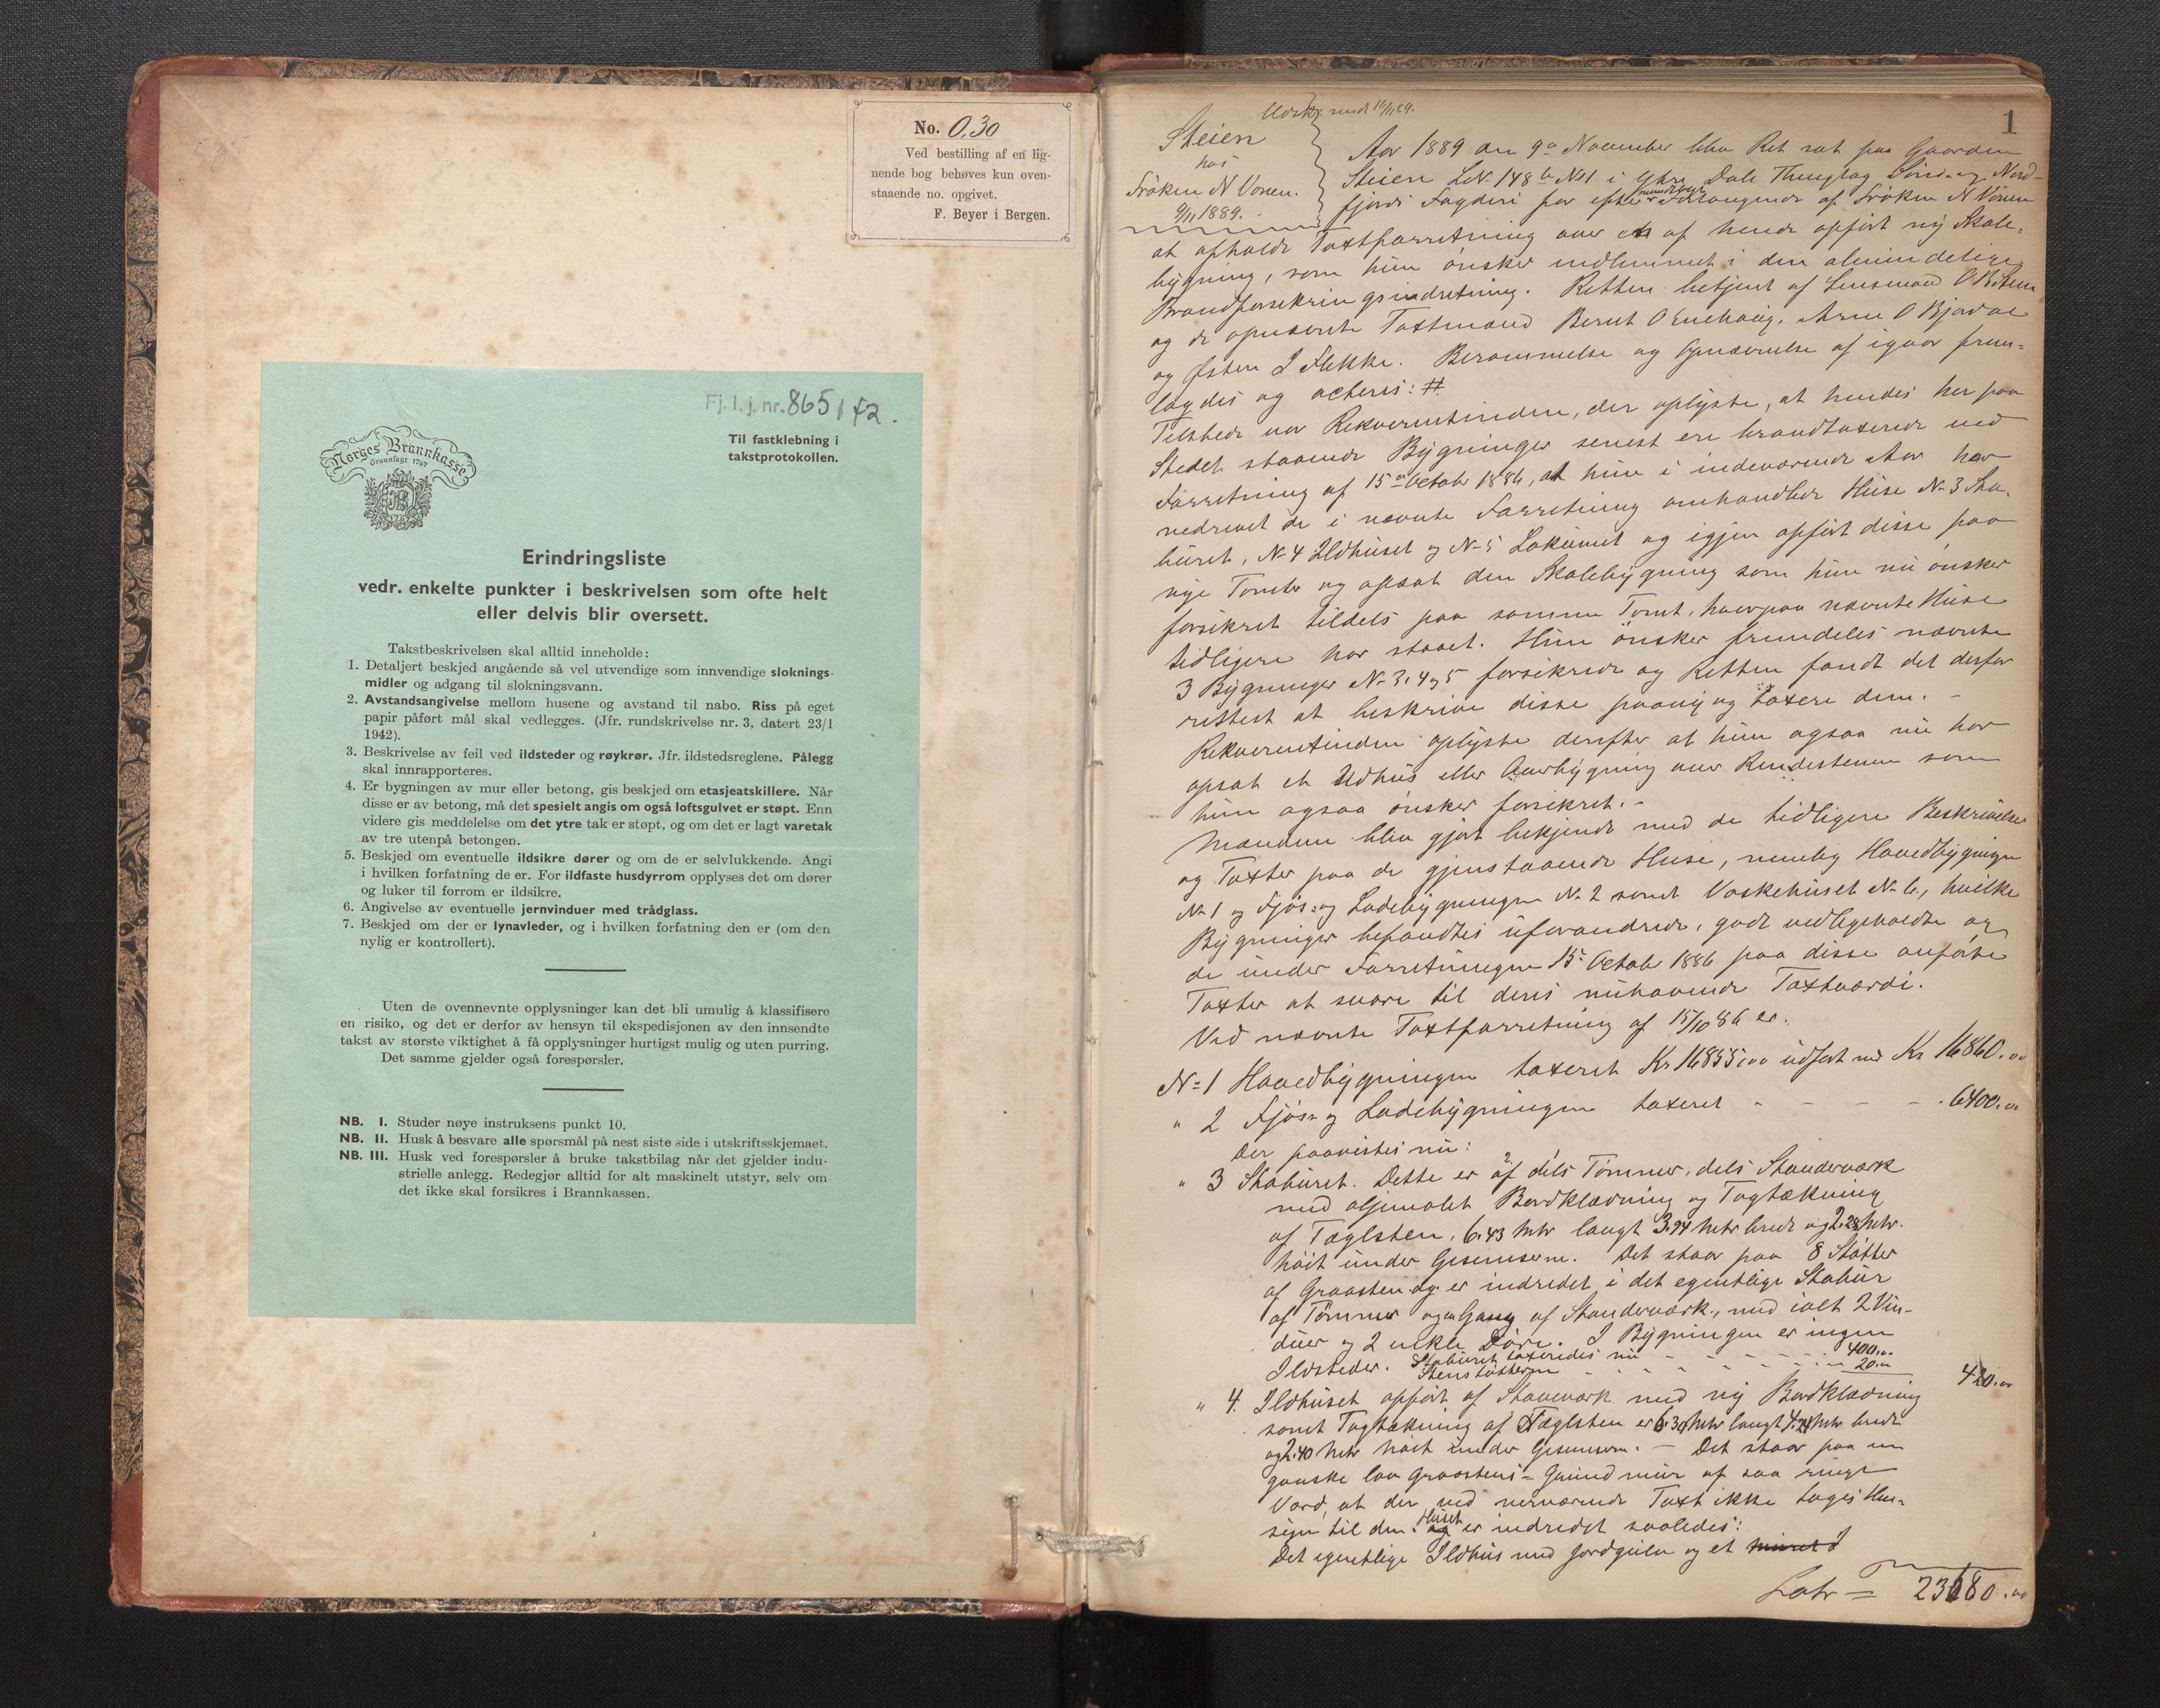 No. 0,30
Ved bestilling af en lig-
nende bog behøves kun oven-
staaende no. opgivet.
F. Beyer i Bergen.
Fj. l. j. nr. 865 / 42.
Til fastklebning i
takstprotokollen.
Norges Brannkasse
Grunnlagt 1767
Erindringsliste
vedr. enkelte punkter i beskrivelsen som ofte helt
eller delvis blir oversett.
Takstbeskrivelsen skal alltid inneholde:
1. Detaljert beskjed angående så vel utvendige som innvendige sloknings-
midler og adgang til slokningsvann.
2. Avstandsangivelse mellom husene og avstand til nabo. Riss på eget
papir påført mål skal vedlegges. (Jfr. rundskrivelse nr. 3, datert 23/1
1942).
3. Beskrivelse av feil ved ildsteder og røykrør. Jfr. ildstedsreglene. Pålegg
skal innrapporteres.
4. Er bygningen av mur eller betong, gis beskjed om etasjeatskillere. Når
disse er av betong, må det spesielt angis om også loftsgulvet er støpt. Enn
videre gis meddelelse om det ytre tak er støpt, og om det er lagt varetak
av tre utenpå betongen.
5. Beskjed om eventuelle ildsikre dører og om de er selvlukkende. Angi
i hvilken forfatning de er. For ildfaste husdyrrom opplyses det om dører
og luker til forrom er ildsikre.
6. Angivelse av eventuelle jernvinduer med trådglass.
7. Beskjed om der er lynavleder, og i hvilken forfatning den er (om den
nylig er kontrollert).
Uten de ovennevnte opplysninger kan det bli umulig å klassifisere
en risiko, og det er derfor av hensyn til ekspedisjonen av den innsendte
takst av største viktighet å få opplysninger hurtigst mulig og uten purring.
Det samme gjelder også forespørsler.
NB. I. Studer nøye instruksens punkt 10.
NB. II. Husk å besvare alle spørsmål på nest siste side i utskriftsskjemaet.
NB. III. Husk ved forespørsler å bruke takstbilag når det gjelder indu-
strielle anlegg. Redegjør alltid for alt maskinelt utstyr, selv om
det ikke skal forsikres i Brannkassen.
1
Udskr. sendt 16/11 89.
Steien
hos
Frøken N Vonen.
9/11 1889.
Aar 1889 den 9de November blev Ret sat paa Gaarden
Steien LN. 148 b No 1 i Ytre Dale Thinglag Sønd- og Nord-
fjords Fogderi for efter mundtlig Forlangende af Frøken N Vonen
at afholde Taxtforretning over en af hende opført ny Skole-
bygning, som hun ønsker indlemmet i den almindelige
Brandforsikringsindretning. Retten betjent af Lensmand
og de opnævnte Taxtmænd Bernt O Enehaug, Arne O Bjordal
og Østen I Flekke. Berammelse og Opnævnelse af igaar frem-
lagdes og acteres: #
Tilstede var Rekvirentinden, der oplyste, at hendes her paa
Stedet staaende Bygninger senest ere brandtaxerede ved
Forretning af 15de Octobr 1886, at hun i indeværende Aar har
nedrevet de i nævnte Forretning omhandlede Huse No 3 Sta-
buret, No 4 Ildhuset og No 5 Lokumet og igjen opført disse paa
nye Tomter og opsat den Skolebygning som hun nu ønsker
forsikret tildels paa samme Tomt, hvorpaa nævnte Huse
tidligere har staaet. Hun ønsker fremdeles nævnte
3 Bygninger No 3, 4 og 5 forsikrede og Retten fandt det derfor
rettest at beskrive disse paany og taxere dem. -
Rekvirentinden oplyste derefter at hun ogsaa nu har
opsat et Udhus eller Overbygning over Rendestenen som
hun ogsaa ønsker forsikret. -
Mændene blev gjort bekjendt med de tidligere Beskrivelser
og Taxter paa de gjenstaaende Huse, nemlig Hovedbygningen
No 1 og Fjøs- og Ladebygningen No 2 samt Vaskehuset No 6, hvilke
Bygninger befandtes uforandrede, godt vedligeholdte og
de under Forretningen 15de Octobr 1886 paa disse anførte
Taxter at svare til deres nuhavende Taxtværdi.
Ved nævnte Taxtforretning af 15/10 86 er.
No 1 Hovedbygningen taxeret Kr 16855,00 udført med Kr 16860.00
" 2 Fjøs- og Ladebygningen taxeret - - - - 6400.00
Der paavistes nu:
" 3 Staburet. Dette er af dels Tømmer, dels Standerværk
med oljemalet Bordklædning og Tagtækning
af Taglsten, 6.43 Mtr langt 3.94 Mtr bredt og 2.28 Mtr.
høit under Gesemserne. Det staar paa 8 Støtter
af Graasten og er indredet i det egentlige Stabur
af Tømmer og en Gang af Standerværk, med ialt 2 Vin-
duer og 2 enkle Døre. I Bygningen er ingen
Ildsteder. Staburet taxeredes nu - - - 400.00
Stenstøtterne - - - 20.00
420.00
" 4. Ildhuset opført af Stavværk med ny Bordklædning
samt Tagtækning af Taglsten er 6.30 Mtr langt 4.24 Mtr bredt
og 2.40 Mtr høit under Gesemserne. - Det staar paa en
ganske lav Graastens-Grundmur af saa ringe
Værd, at der ved nærværende Taxt ikke tages Hen-
syn til den. Huset er indredet saaledes:
Det egentlige Ildhus med Jordgulv og et
Latr = 23680.00